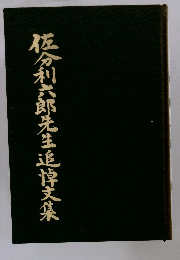 佐分利六郎先生追悼文集